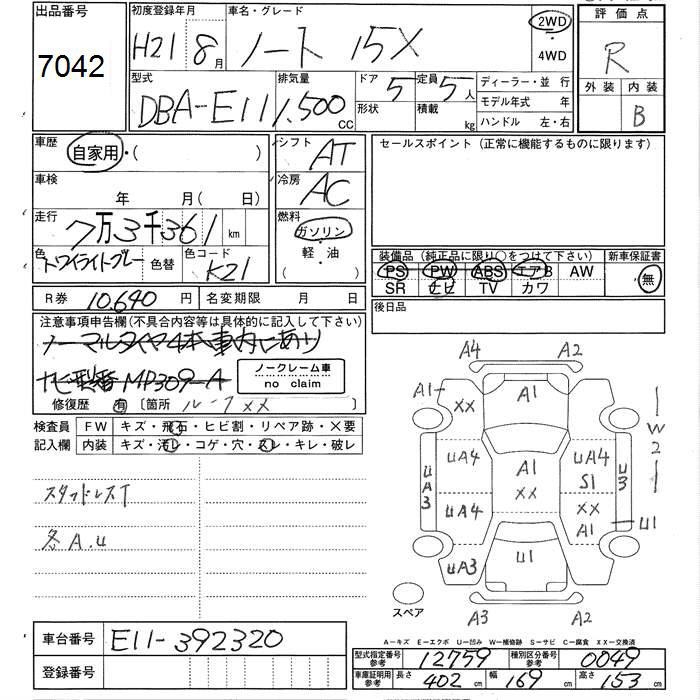 出品番号
7042
初度登録年月
H21 8月
車名・グレード
ノート 15X
2WD
・
4WD
評価点
R
外装 内装
B
型式
DBA-E11
排気量
1,500 CC
ドア 5
形状
定員 5人
積載 kg
ディーラー・並行
モデル年式 年
ハンドル 左・右
車歴
自家用・( )
シフト
AT
車検
年 月( 日)
冷房
AC
走行
7万3千361 km
燃料
ガソリン
・
軽・油
( )
色
トワイライトグレー
色替
色コード
K21
セールスポイント (正常に機能するものに限ります)
装備品 (純正品に限り○をつけて下さい)
新車保証書
PS PW ABS エアB AW
SR ナビ TV カワ
無
後日品
R券 10,640 円
名変期限 月 日
注意事項申告欄(不具合内容等は具体的に記入して下さい)
ノーマルタイヤ4本車内にあり
ナビ型番 MP309-A
ノークレーム車
no claim
修復歴 有 〔箇所 ルーフxx 〕
検査員
記入欄
FW キズ・飛石・ヒビ割・リペア跡・X要
内装 キズ・汚レ・コゲ・穴・スレ・キレ・破レ
スタッドレスT
各A.u
A4
A2
A1
XX
A1
W2
uA4
A1
XX
uA4
S1
uA3
u3
uA4
XX
A1
u1
uA3
u1
A3
A2
スペア
A−キズ E−エクボ U−凹み W−補修跡 S−サビ C−腐食 XX−交換済
車台番号 E11-392320
登録番号
型式指定番号
参考
12759
種別区分番号
参考
0049
車庫証明用
参考
長さ 402 cm
幅 169 cm
高さ 153 cm